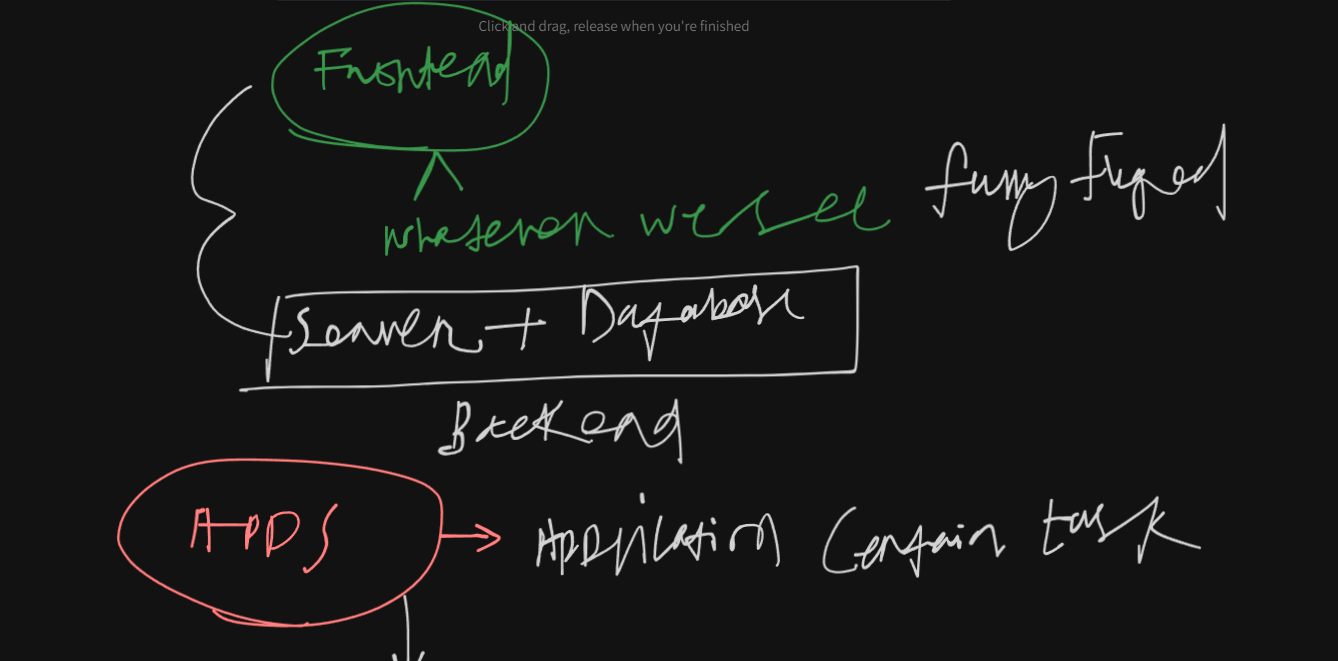 Click and drag, release when you're finished
Frontend
whatever we see
Server + Database
Backend
APPS
Application Certain task